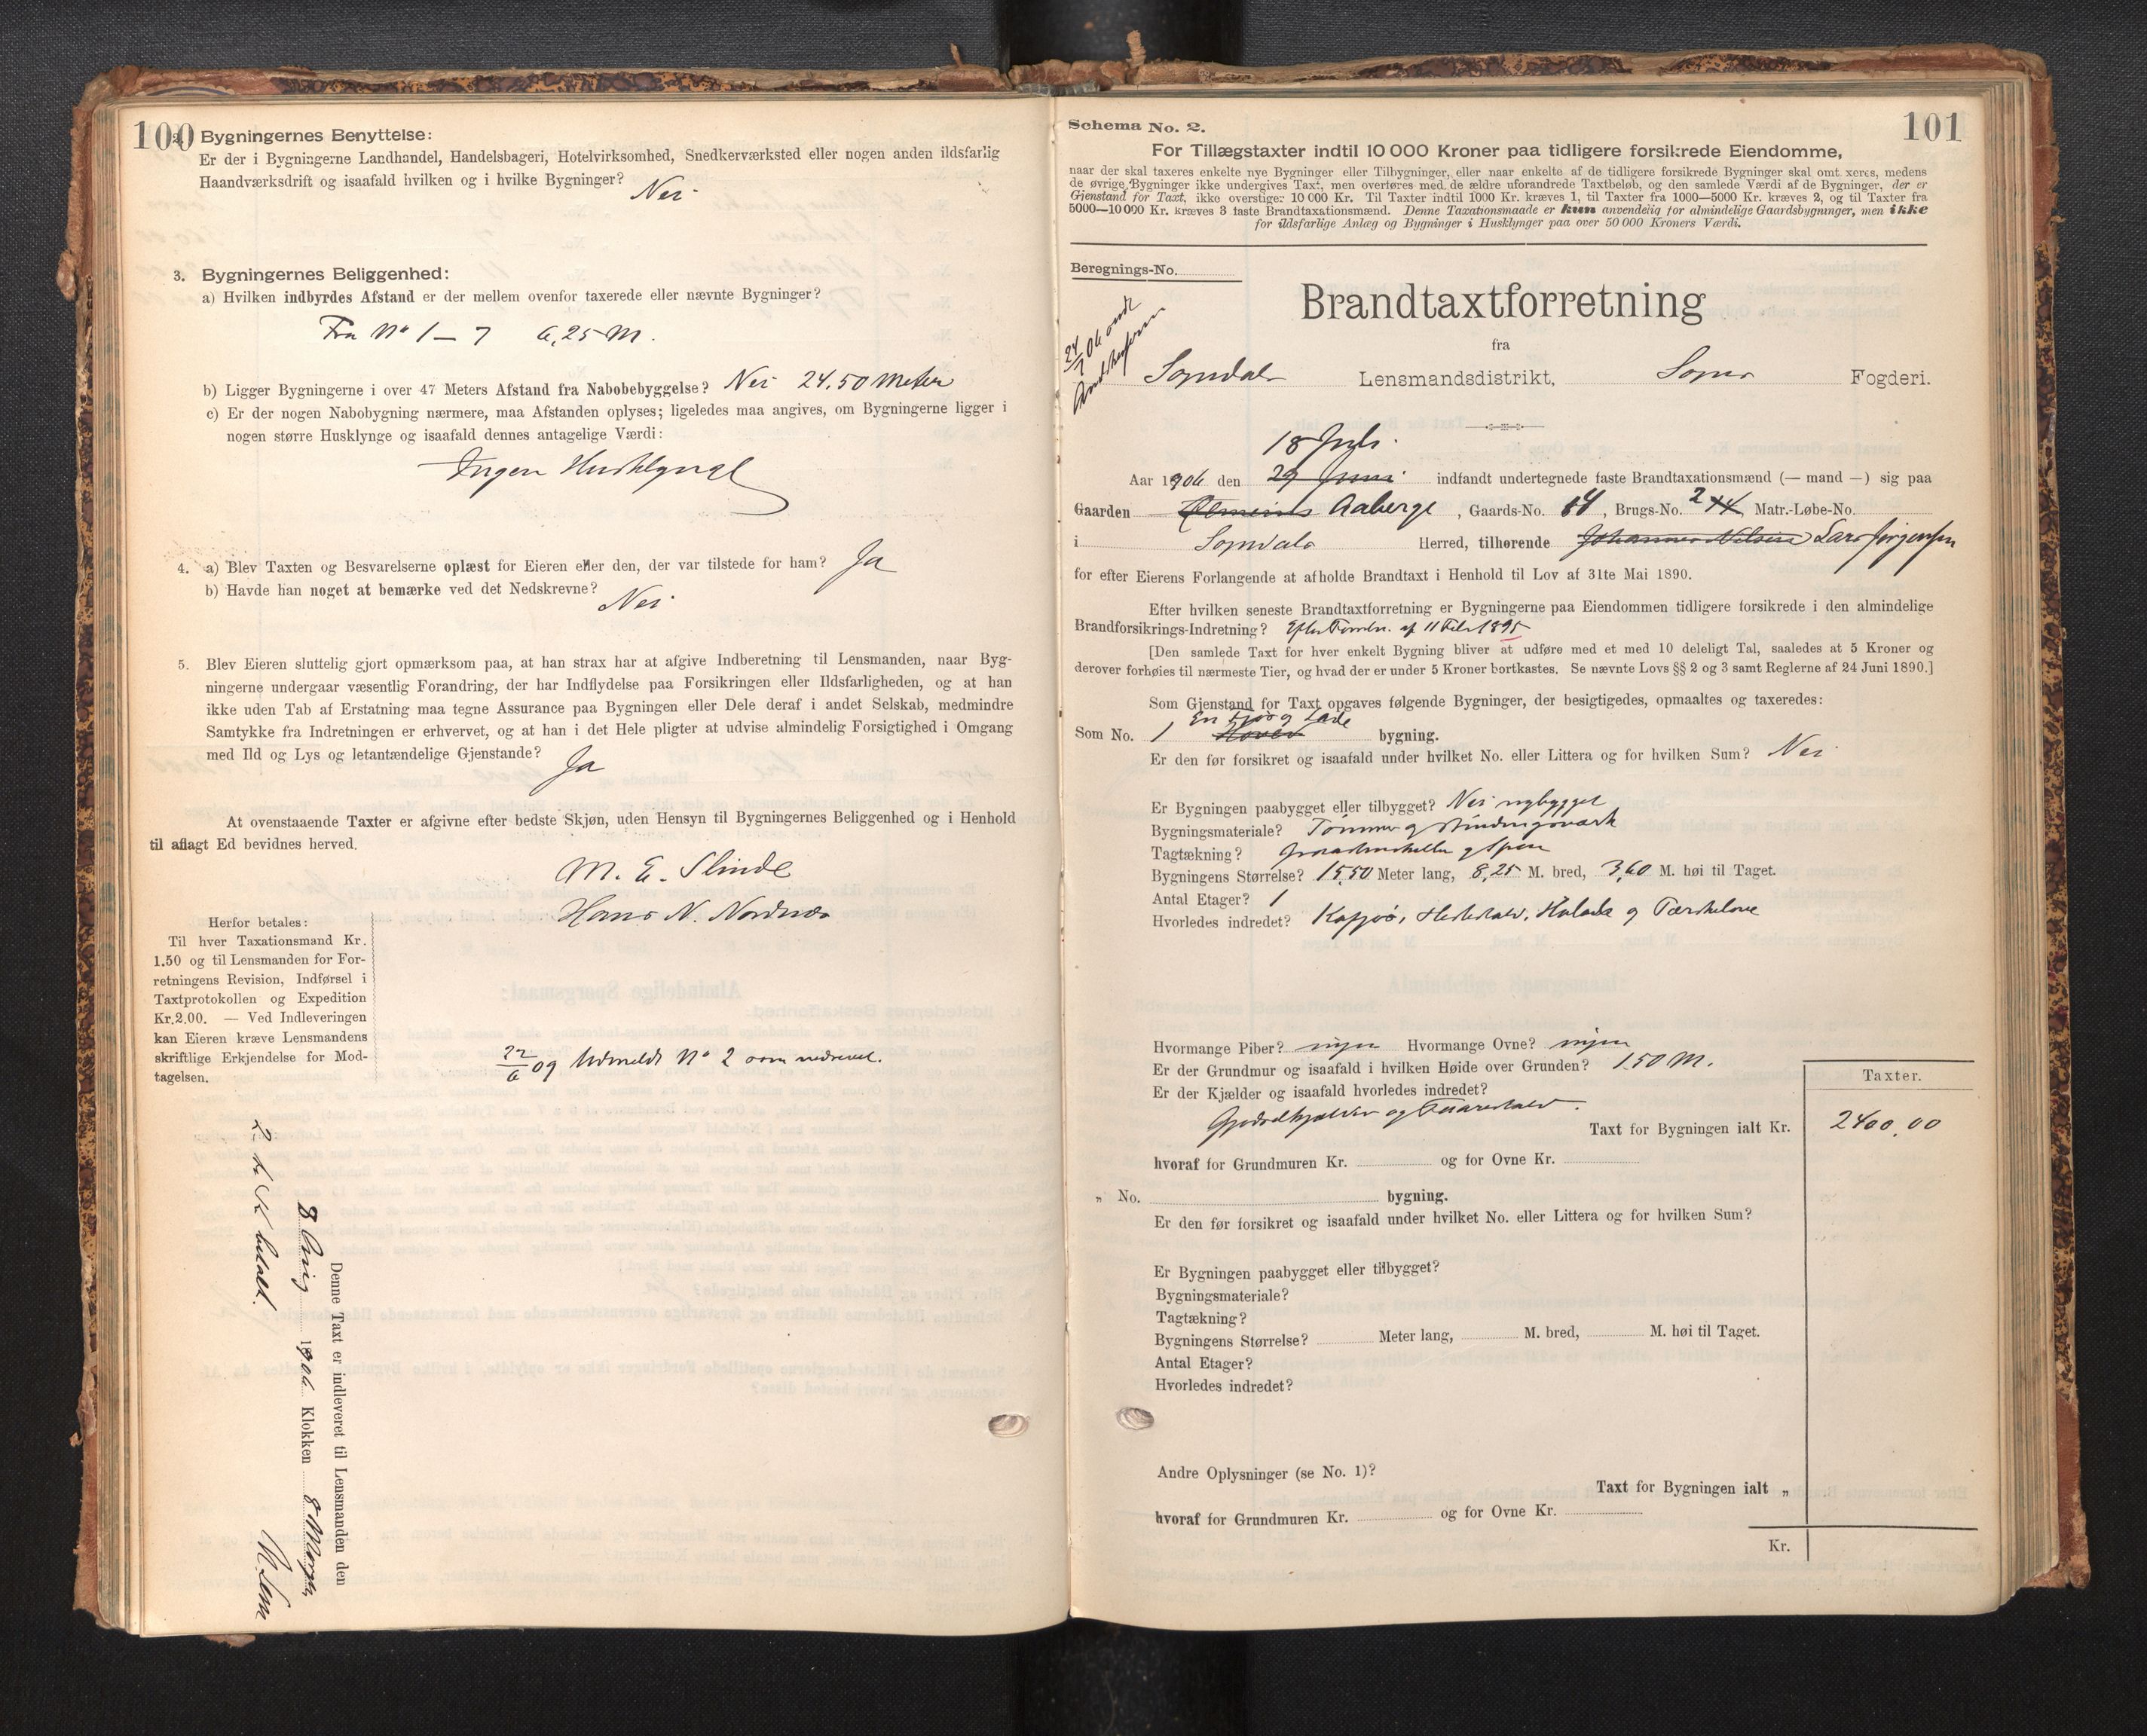 100
2. Bygningernes Benyttelse:
Er der i Bygningerne Landhandel, Handelsbageri, Hotelvirksomhed, Snedkerværksted eller nogen anden ildsfarlig
Haandværksdrift og isaafald hvilken og i hvilke Bygninger? Nei
3. Bygningernes Beliggenhed:
a) Hvilken indbyrdes Afstand er der mellem ovenfor taxerede eller nævnte Bygninger?
Fra No 1 – 7 6,25 M.
b) Ligger Bygningerne i over 47 Meters Afstand fra Nabobebyggelse? Nei 24.50 Meter
c) Er der nogen Nabobygning nærmere, maa Afstanden oplyses; ligeledes maa angives, om Bygningerne ligger i
nogen større Husklynge og isaafald dennes antagelige Værdi:
Ingen Husklynge
4. a) Blev Taxten og Besvarelserne oplæst for Eieren eller den, der var tilstede for ham? Ja
b) Havde han noget at bemærke ved det Nedskrevne? Nei
5. Blev Eieren sluttelig gjort opmærksom paa, at han strax har at afgive Indberetning til Lensmanden, naar Byg-
ningerne undergaar væsentlig Forandring, der har Indflydelse paa Forsikringen eller Ildsfarligheden, og at han
ikke uden Tab af Erstatning maa tegne Assurance paa Bygningen eller Dele deraf i andet Selskab, medmindre
Samtykke fra Indretningen er erhvervet, og at han i det Hele pligter at udvise almindelig Forsigtighed i Omgang
med Ild og Lys og letantændelige Gjenstande? Ja
At ovenstaaende Taxter er afgivne efter bedste Skjøn, uden Hensyn til Bygningernes Beliggenhed og i Henhold
til aflagt Ed bevidnes herved.
M. E. Slinde
Hans N. Nordnæs
Herfor betales:
Til hver Taxationsmand Kr.
1.50 og til Lensmanden for For-
retningens Revision, Indførsel i
Taxtprotokollen og Expedition
Kr. 2.00. — Ved Indleveringen
kan Eieren kræve Lensmandens
skriftlige Erkjendelse for Mod-
tagelsen.
22/6 09 Udmeldt No 2 som nedrevet.
Denne Taxt er indleveret til Lensmanden den
8 Aug 1906 Klokken 8 Morgen
2 betalt.
101
Schema No. 2.
For Tillægstaxter indtil 10 000 Kroner paa tidligere forsikrede Eiendomme,
naar der skal taxeres enkelte nye Bygninger eller Tilbygninger, eller naar enkelte af de tidligere forsikrede Bygninger skal omtaxeres, medens
de øvrige Bygninger ikke undergives Taxt, men overføres med de ældre uforandrede Taxtbeløb, og den samlede Værdi af de Bygninger, der er
Gjenstand for Taxt, ikke overstiger 10 000 Kr. Til Taxter indtil 1000 Kr. kræves 1, til Taxter fra 1000—5000 Kr. kræves 2, og til Taxter fra
5000—10 000 Kr. kræves 3 faste Brandtaxationsmænd. Denne Taxationsmaade er kun anvendelig for almindelige Gaardsbygninger, men ikke
for ildsfarlige Anlæg og Bygninger i Husklynger paa over 50 000 Kroners Værdi.
Beregnings-No.
Brandtaxtforretning
fra
Sogndals Lensmandsdistrikt, Sogns Fogderi.
18 Juli
Aar 1906 den 29 Juni indfandt undertegnede faste Brandtaxationsmænd (— mand —) sig paa
Gaarden Aaberge, Gaards-No. 14, Brugs-No. 2 Matr.-Løbe-No.
i Sogndals Herred, tilhørende Johannes Nilsen Lars Jørgensen
for efter Eierens Forlangende at afholde Brandtaxt i Henhold til Lov af 31te Mai 1890.
Efter hvilken seneste Brandtaxtforretning er Bygningerne paa Eiendommen tidligere forsikrede i den almindelige
Brandforsikrings-Indretning? Efter Forretn. af 11 Febr 1895
[Den samlede Taxt for hver enkelt Bygning bliver at udføre med et med 10 deleligt Tal, saaledes at 5 Kroner og
derover forhøies til nærmeste Tier, og hvad der er under 5 Kroner bortkastes. Se nævnte Lovs §§ 2 og 3 samt Reglerne af 24 Juni 1890.]
Som Gjenstand for Taxt opgaves følgende Bygninger, der besigtigedes, opmaaltes og taxeredes:
En Fjøs og Lade
Som No. 1 Hoved bygning.
Er den før forsikret og isaafald under hvilket No. eller Littera og for hvilken Sum? Nei
Er Bygningen paabygget eller tilbygget? Nei nybygget
Bygningsmateriale? Tømmer og Bindingsværk
Tagtækning? Graastenheller og Spon
Bygningens Størrelse? 15,50 Meter lang, 8,25 M. bred, 3,60 M. høi til Taget.
Antal Etager? 1
Hvorledes indredet? Kofjøs, Hestestald, Hølade og Tærskelove
Hvormange Piber? ingen Hvormange Ovne? ingen
Er der Grundmur og isaafald i hvilken Høide over Grunden? 1.50 M.
Er der Kjælder og isaafald hvorledes indredet?
Gjødselkjælder og Faarestald.
Taxter.
Taxt for Bygningen ialt Kr. 2400,00
hvoraf for Grundmuren Kr. og for Ovne Kr.
„ No. bygning.
Er den før forsikret og isaafald under hvilket No. eller Littera og for hvilken Sum?
Er Bygningen paabygget eller tilbygget?
Bygningsmateriale?
Tagtækning?
Bygningens Størrelse? Meter lang, M. bred, M. høi til Taget.
Antal Etager?
Hvorledes indredet?
Andre Oplysninger (se No. 1)?
Taxt for Bygningen ialt „
hvoraf for Grundmuren Kr. og for Ovne Kr.
Kr.